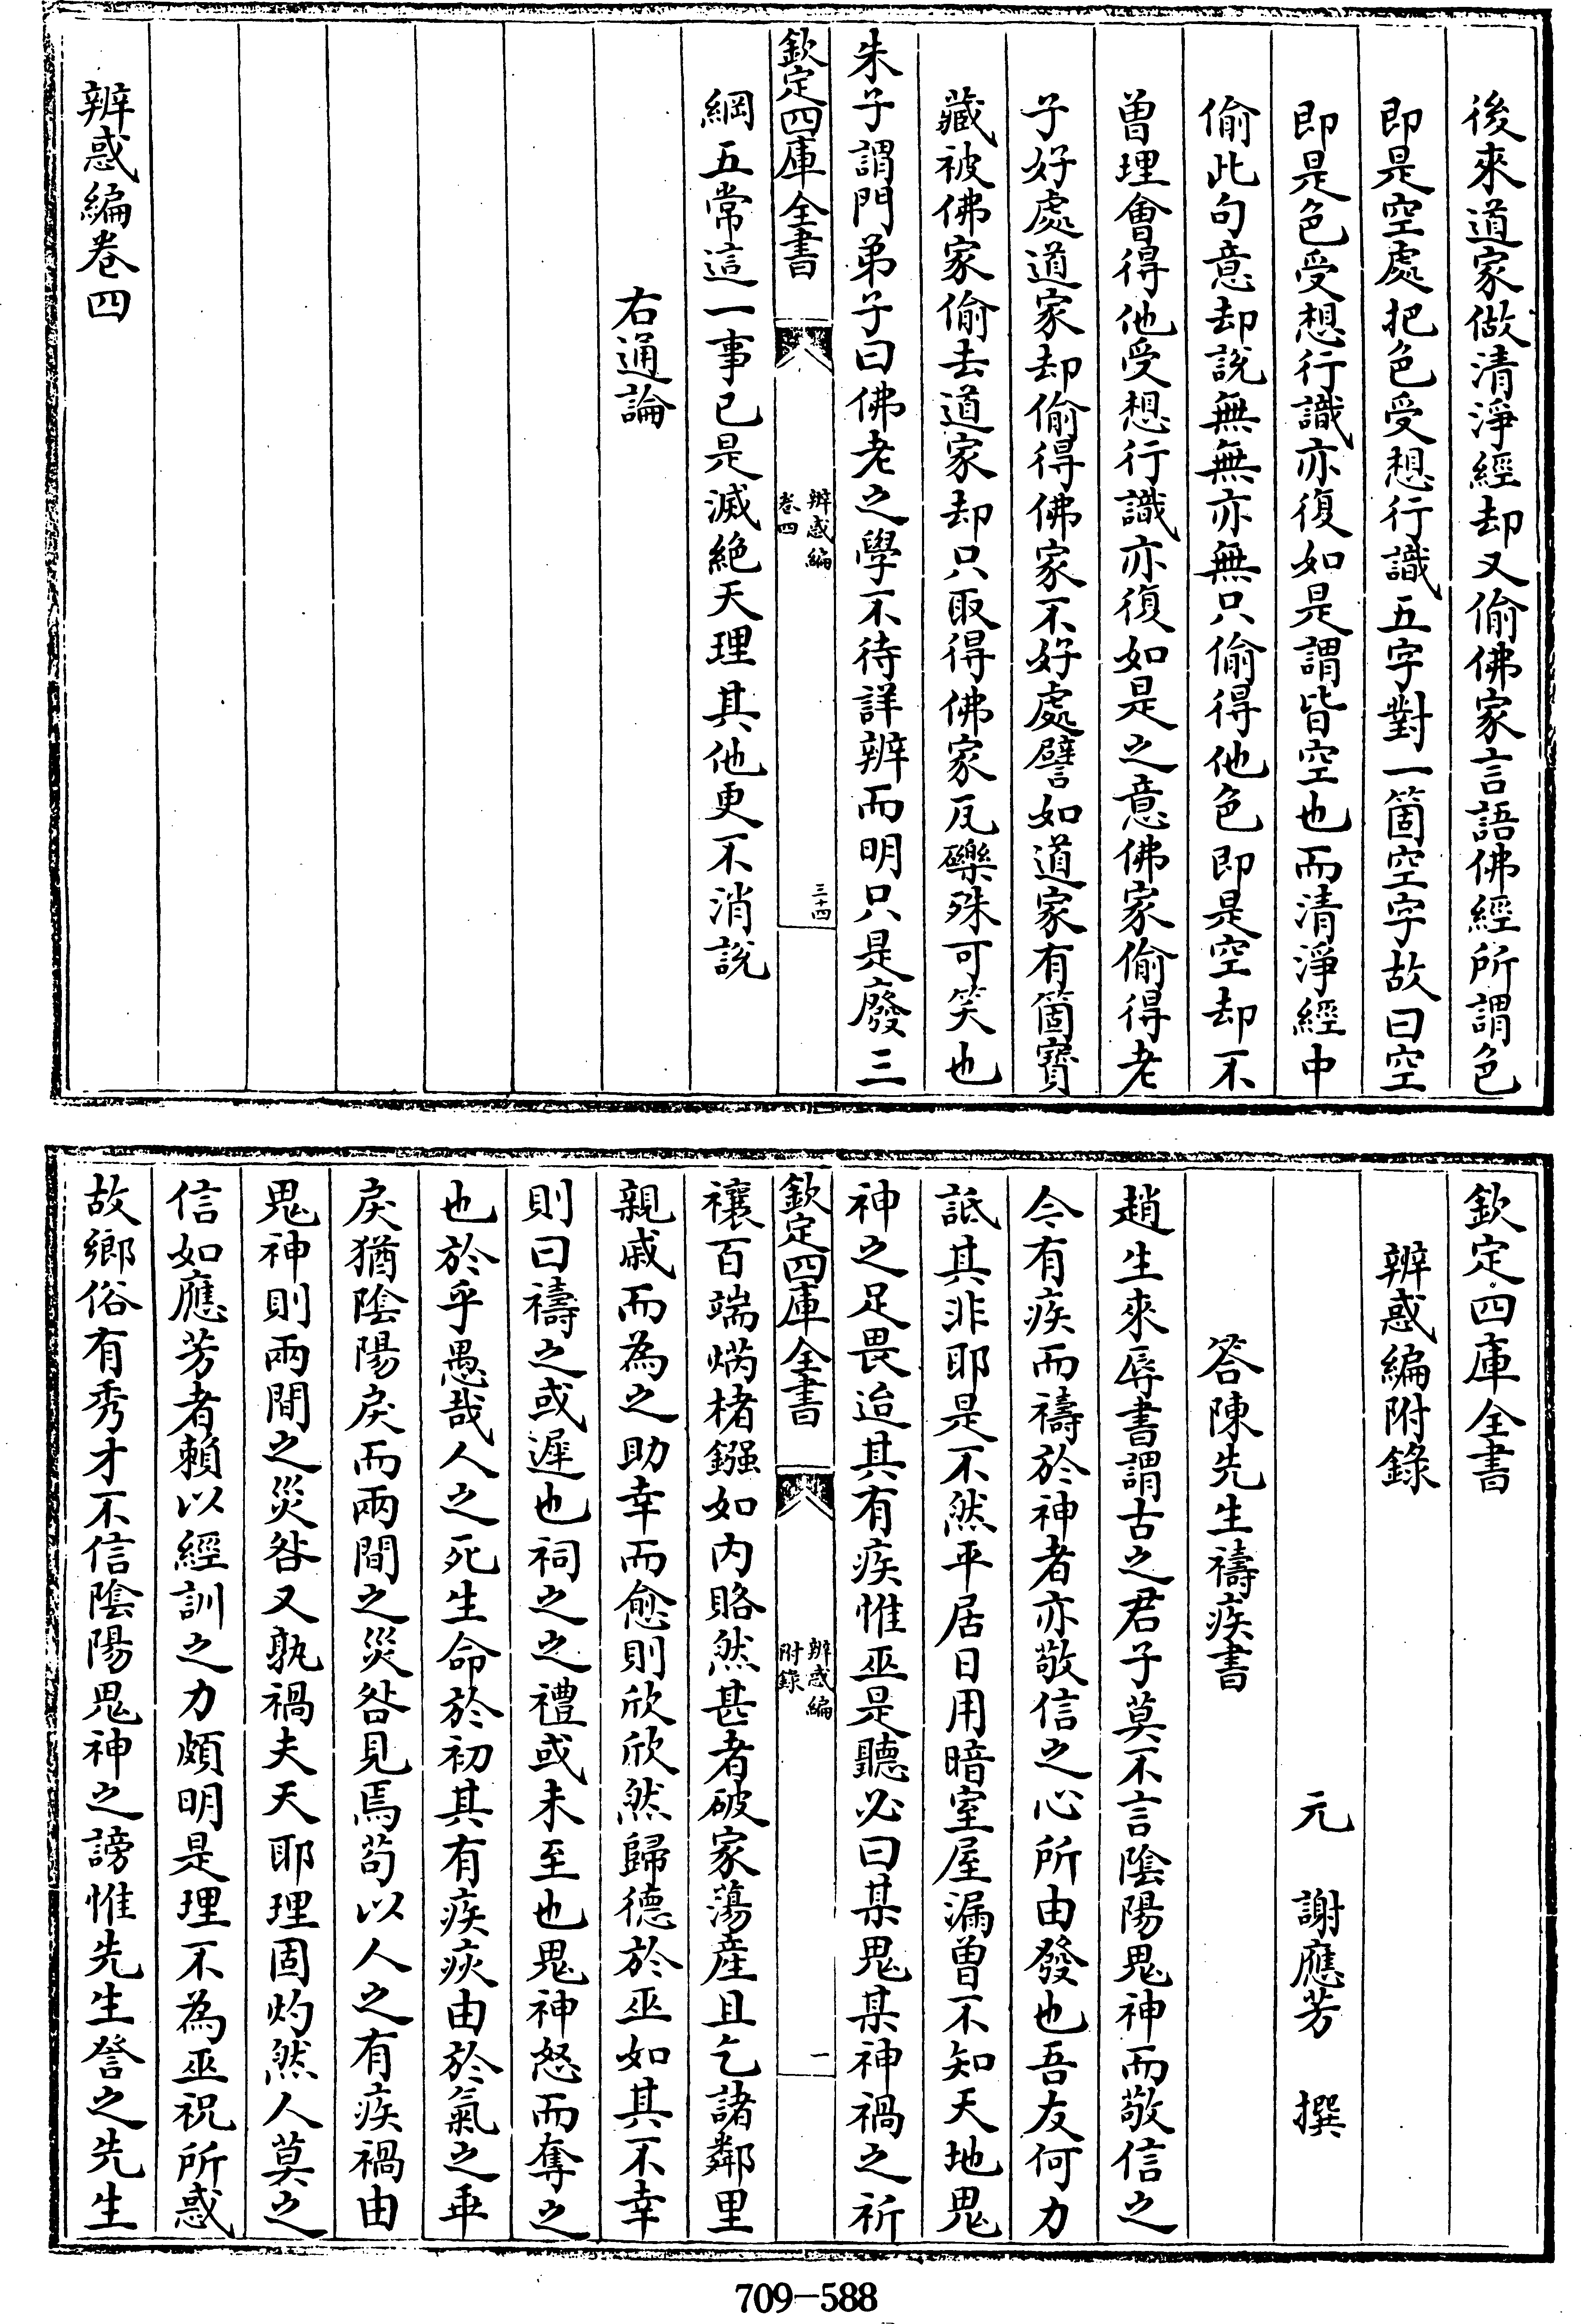 後來道家做清淨經却又偷佛家言語佛經所謂色
即是空處把色受想行識五字對一箇空字故曰空
即是色受想行識亦復如是謂皆空也而清淨經中
偷此句意却說無無亦無只偷得他色即是空却不
曽理會得他受想行識亦復如是之意佛家偷得老
子好處道家却偷得佛家不好處譬如道家有箇寳
藏被佛家偷去道家却只取得佛家瓦礫殊可笑也
朱子謂門弟子曰佛老之學不待詳辨而明只是廢三
欽定四庫全書
辨惑編
卷四
三十四
綱五常這一事已是滅絶天理其他更不消說
右通論
辨惑編卷四
欽定四庫全書
辨惑編附錄
元 謝應芳 撰
答陳先生禱疾書
趙生來辱書謂古之君子莫不言隂陽鬼神而敬信之
今有疾而禱於神者亦敬信之心所由發也吾友何力
詆其非耶是不然平居日用暗室屋漏曽不知天地鬼
神之足畏迨其有疾惟巫是聽必曰某鬼某神禍之祈
欽定四庫全書
辨惑編
附錄
一
禳百端焫楮鏹如内賂然甚者破家蕩産且乞諸鄰里
親戚而為之助幸而愈則欣欣然歸德於巫如其不幸
則曰禱之或遲也祠之之禮或未至也鬼神怒而奪之
也於乎愚哉人之死生命於初其有疾疢由於氣之乖
戾猶隂陽戾而兩間之災咎見焉茍以人之有疾禍由
鬼神則兩間之災咎又孰禍夫天耶理固灼然人莫之
信如應芳者賴以經訓之力頗明是理不為巫祝所惑
故鄉俗有秀才不信隂陽鬼神之謗惟先生詧之先生
709-588